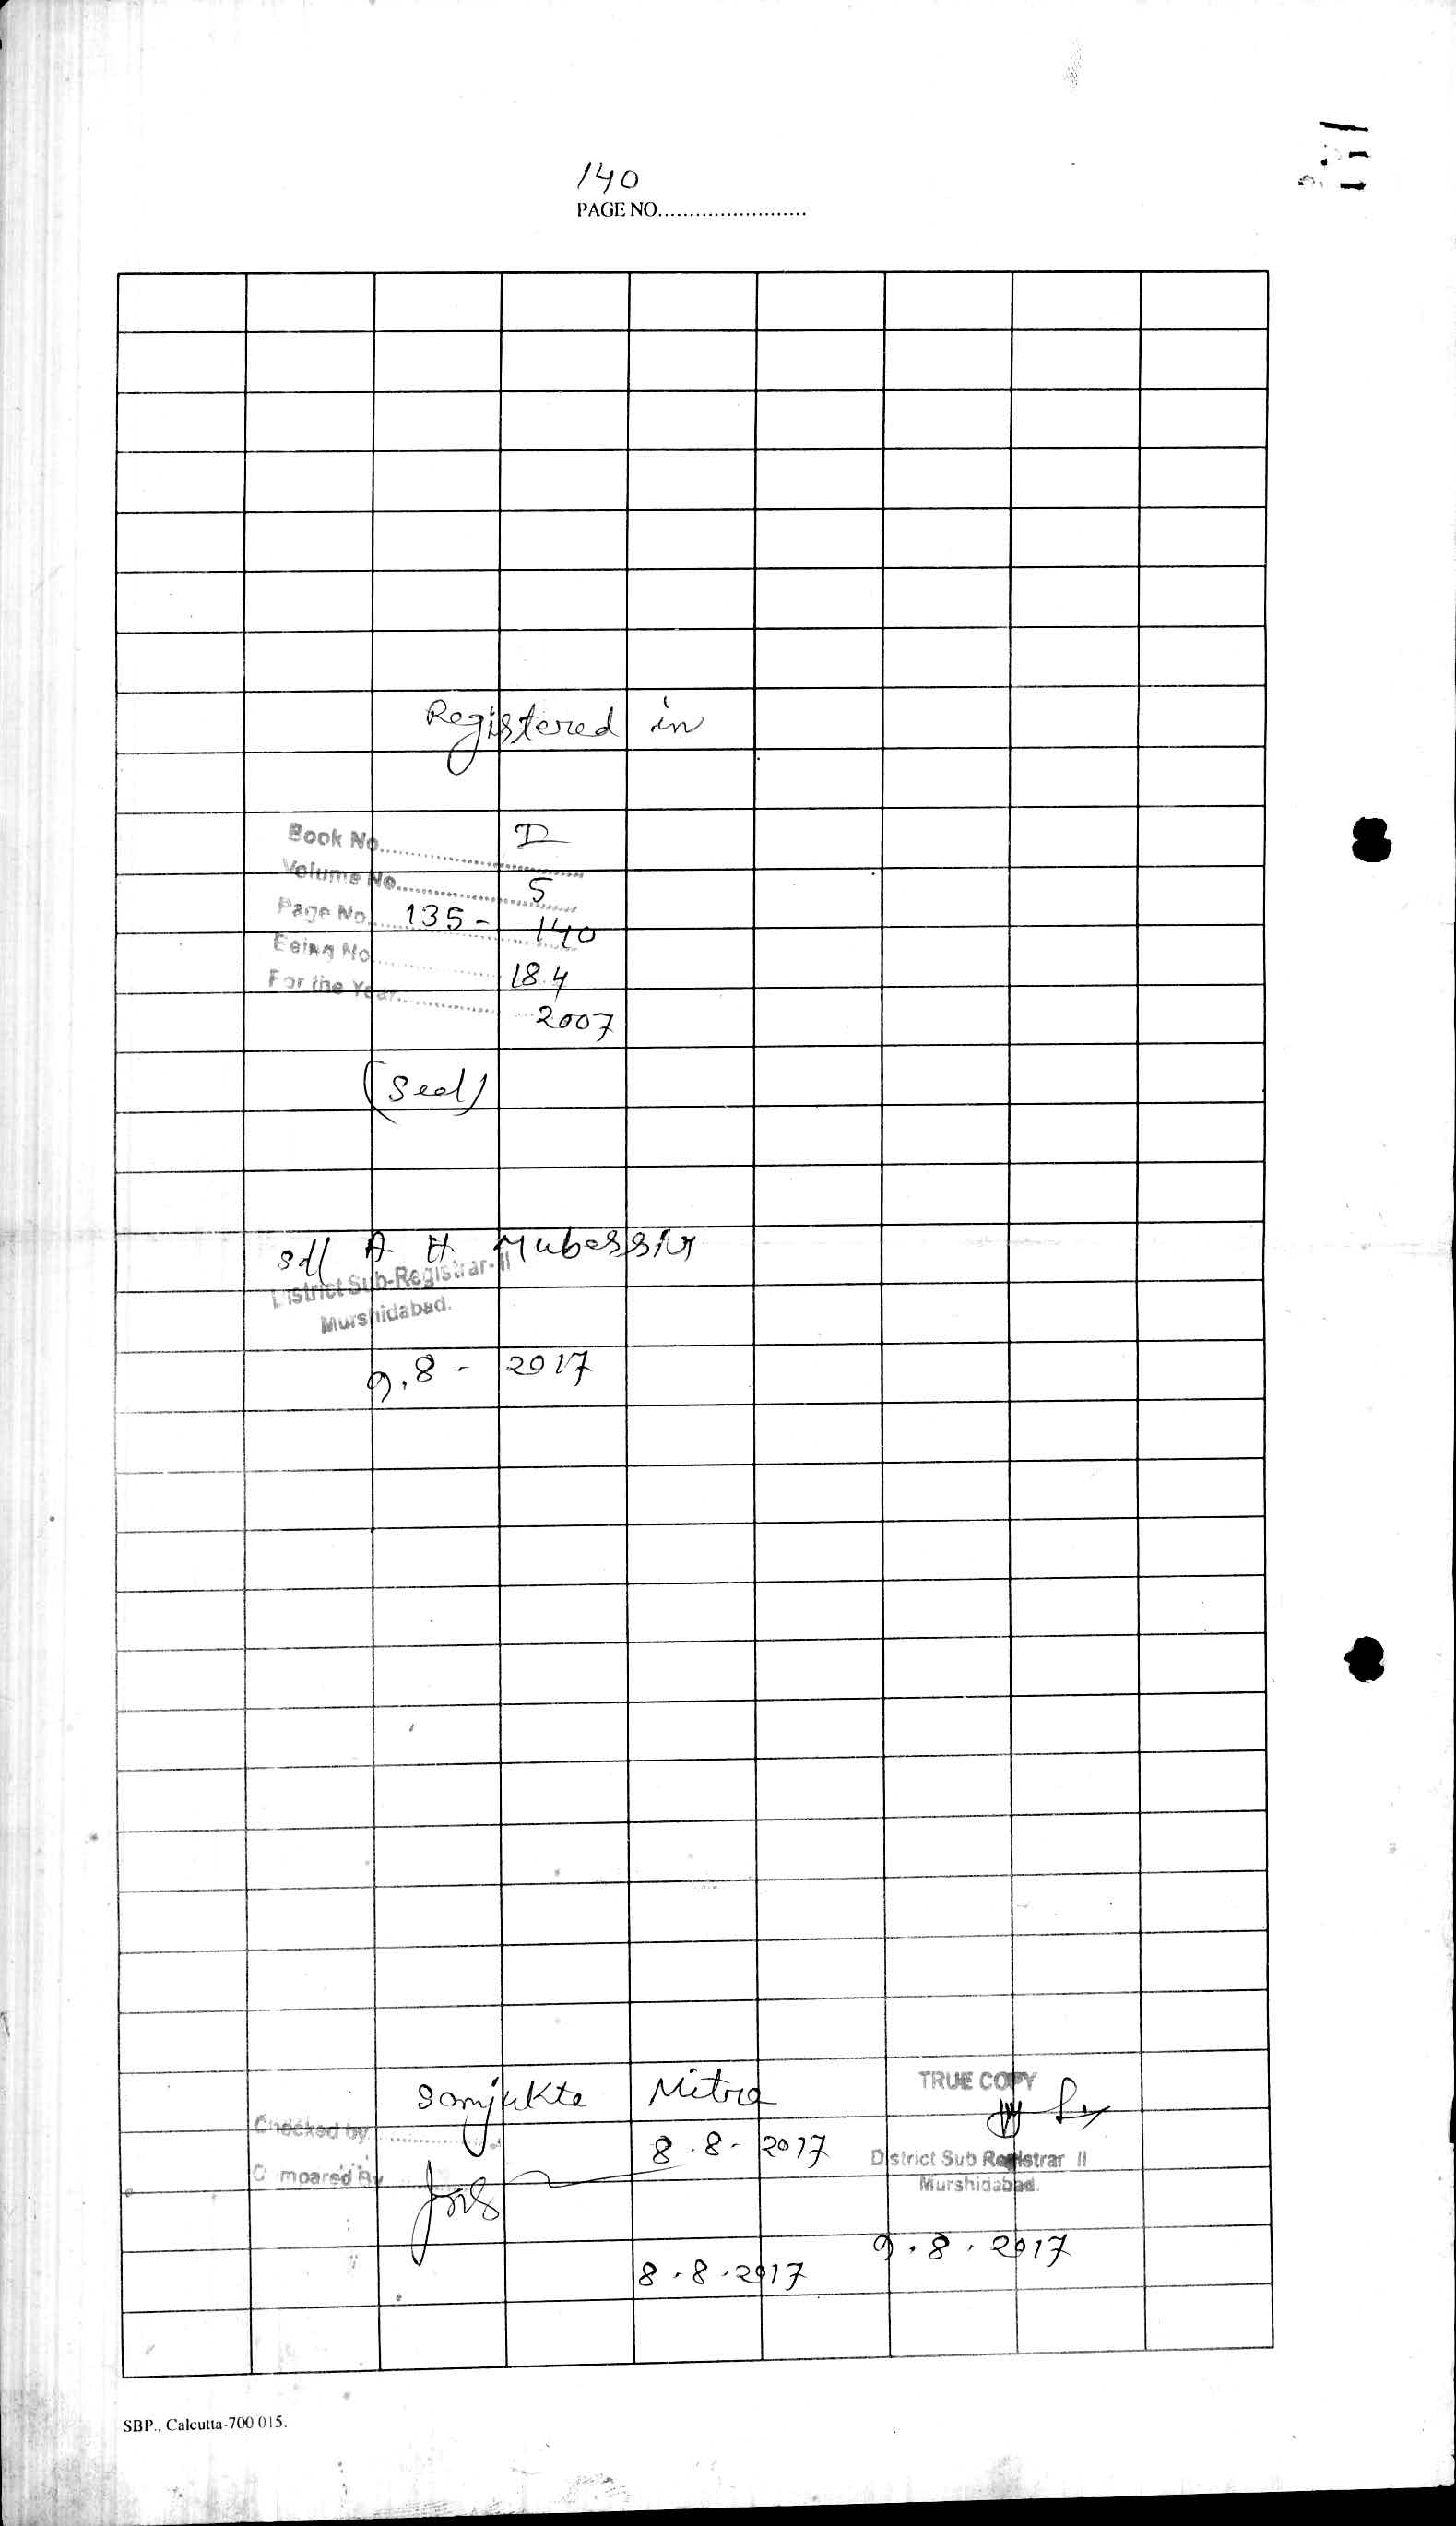 140
PAGE NO.........................
Registered in
Book No.................. I
Volume No.................. 5
Page No. 135 - 140
Being No.................. 184
For the Year.................. 2007
(Seal)
Sd/ A. H. Mubassir
District Sub-Registrar-II
Murshidabad.
9.8 - 2017
Sanjukta Mitra
Checked by
8.8.2017
Compared By
8.8.2017
TRUE COPY
District Sub Registrar II
Murshidabad.
9.8.2017
SBP., Calcutta-700 015.